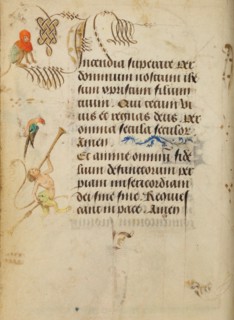 Incendia superare Per
dominum nostrum ihe
sum xpristum filium
tuum. Qui tecum vi
uit et regnat deus per
omnia secula seculor
Amen
Et anime omnium fide
lium defunctorum per
piam misericordiam
dei sine fine Requies
cant in pace. Amen